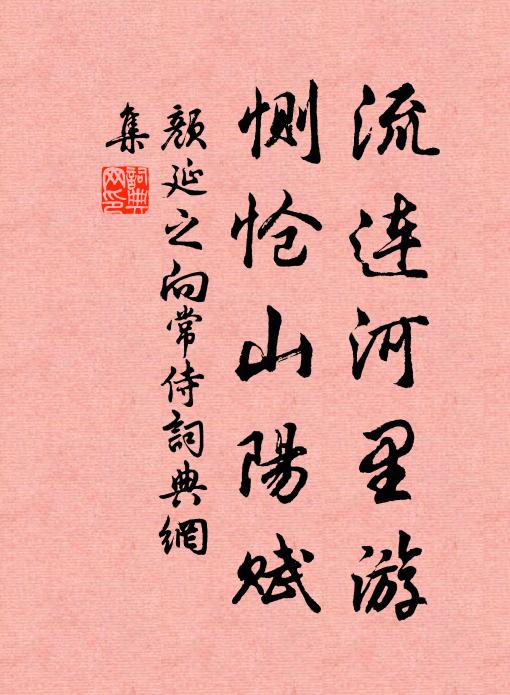 流连河里游
恻怆山陽赋
颜延之向常侍詞典網
集
詞典网印